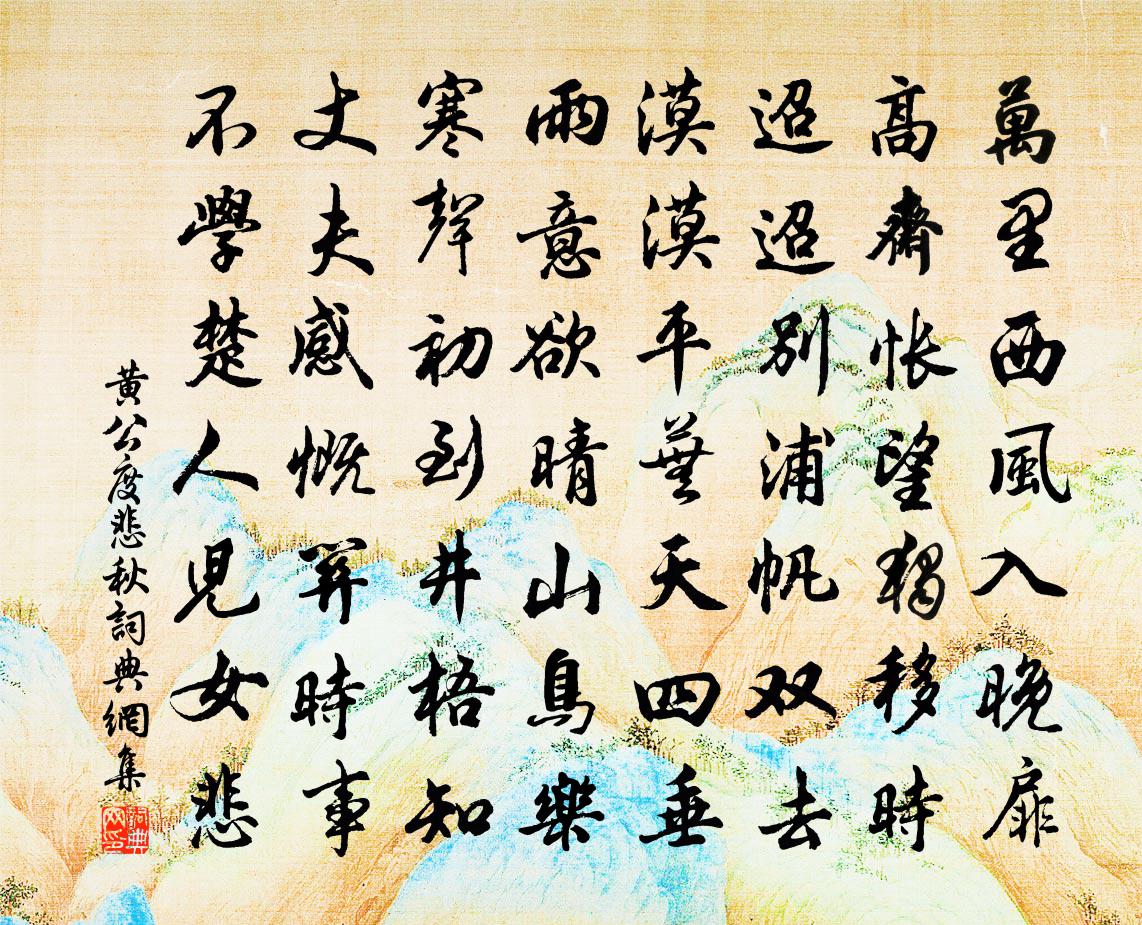 萬里西風入晚扉
高齋悵望獨移時
迢迢別浦帆双去
漠漠平蕪天四垂
雨意欲晴山鳥樂
寒聲初到井梧知
丈夫感慨關時事
不學楚人兒女悲
黃公度悲秋詞典網集
詞典